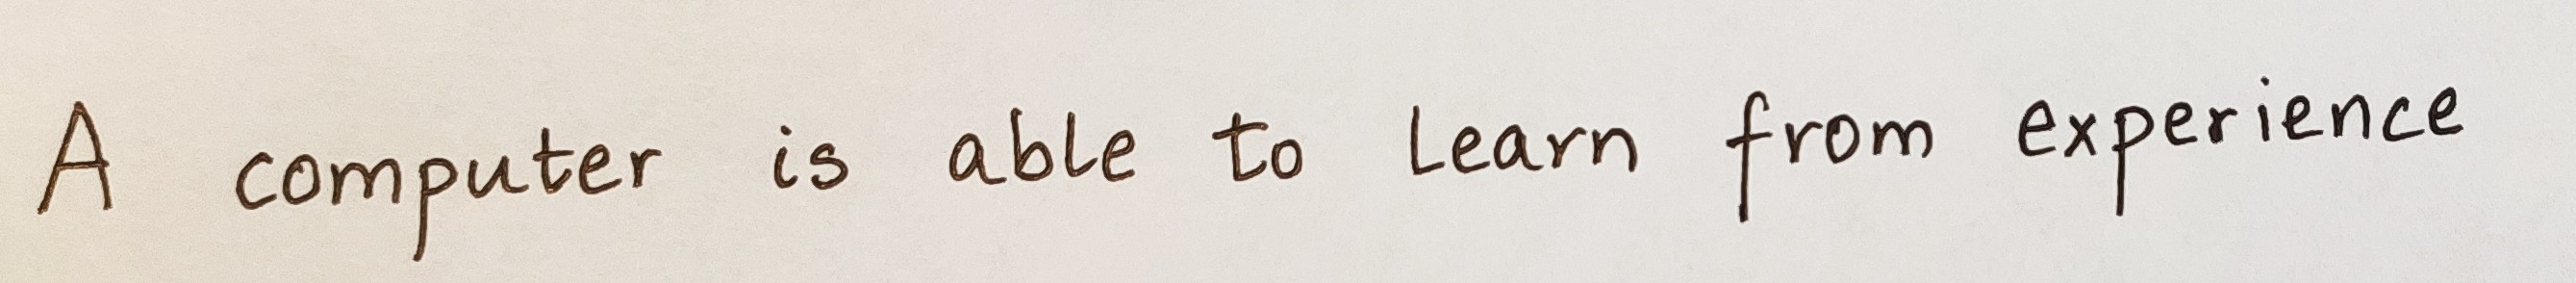 A computer is able to learn from experience